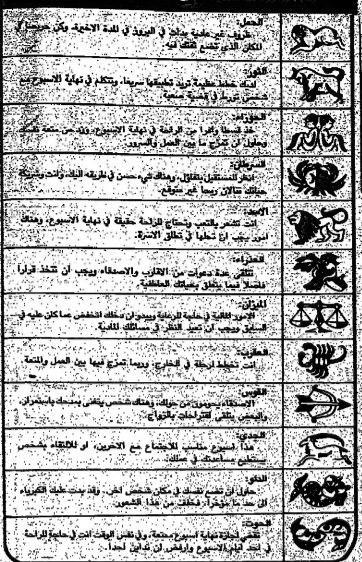 الحمل:
ظروف غير عادية بدات في البروز في المدة الاخيرة، وكن حريصا في
المكان الذي تضع ثقتك فيه.
الثور:
لديك خطط عظيمة تريد تطبيقها سريعا، وتتكلم في نهاية الاسبوع مع
شخص تريده في قضية صعبة
الجوزاء:
خذ قسطا وافرا من الراحة في نهاية الاسبوع، وزد من متعة نفسك
وحاول ان تمزج ما بين العمل والسرور.
السرطان:
انظر للمستقبل بتفاؤل، وهناك شيء حسن في طريقه اليك، وانت وشريكة
حياتك تنالان ربحا غير متوقع.
الاسد:
انت تشعر بالتعب وتحتاج للراحة حقيقة في نهاية الاسبوع، وهناك
امور يجب ان تحلها في نطاق الاسرة.
العذراء:
تتلقى عدة دعوات من الاقارب والاصدقاء ويجب ان تتخذ قرارا
فاصلا فيما يتعلق بحياتك العاطفية.
الميزان:
الامور المالية في حاجة للرعاية ويبدو ان دخلك انخفض عما كان عليه في
السابق ويجب ان تعيد النظر في مسائلك المادية.
العقرب:
انت تخطط لرحلة في الخارج، وربما تمزج فيها بين العمل والمتعة
القوس:
الاصدقاء يحومون من حولك، وهناك شخص يتغنى بمدحك باستمرار،
والبعض يتلقى اقتراحات بالزواج.
الجدي:
هذا اسبوع مناسب للاجتماع مع الاخرين، او للالتقاء بشخص
يستطيع مساعدتك في عملك.
الدلو:
حاول ان تضع نفسك في مكان شخص اخر، وقد بدت عليك الكبرياء
الى حد ما مؤخرا، فخفف من هذا الشعور.
الحوت:
تقضي اجازة نهاية اسبوع ممتعة، وفي نفس الوقت انت في حاجة للراحة
في احد ايام الاسبوع وارفض ان تداين احدا.